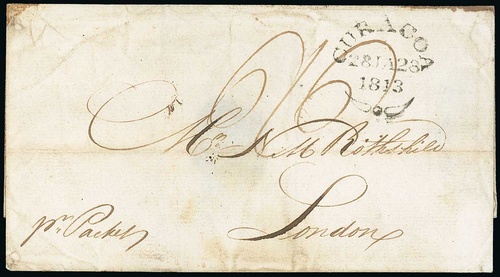 CURACOA
28JA28
1813
Mr N M Rothshild
London
pr. Packet